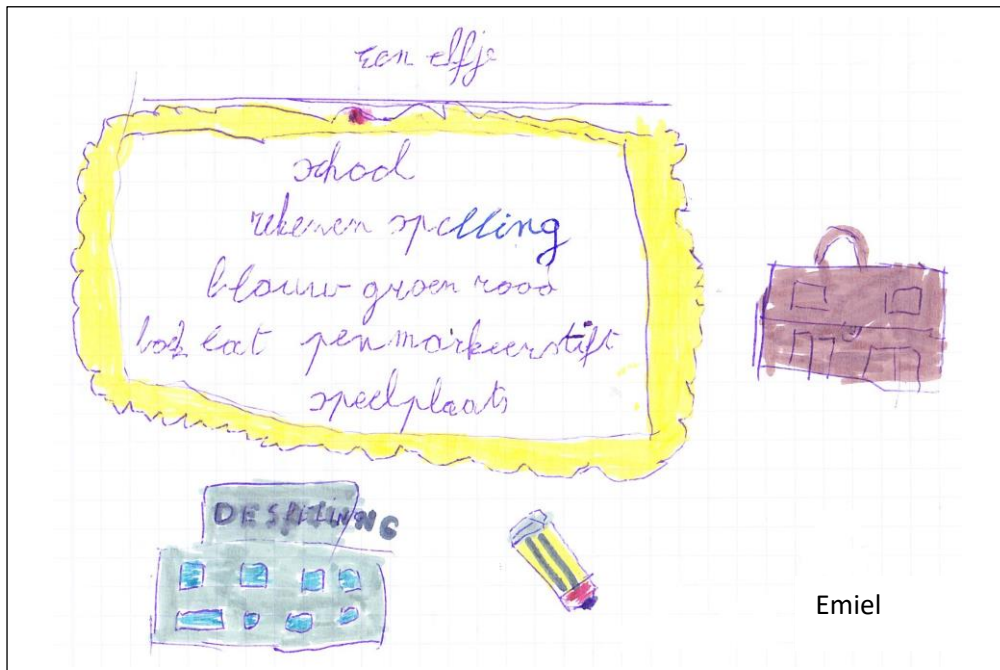 een elfje
school
rekenen spelling
blouw groen rood
lat pen markeerstift
speelplaats
Emiel